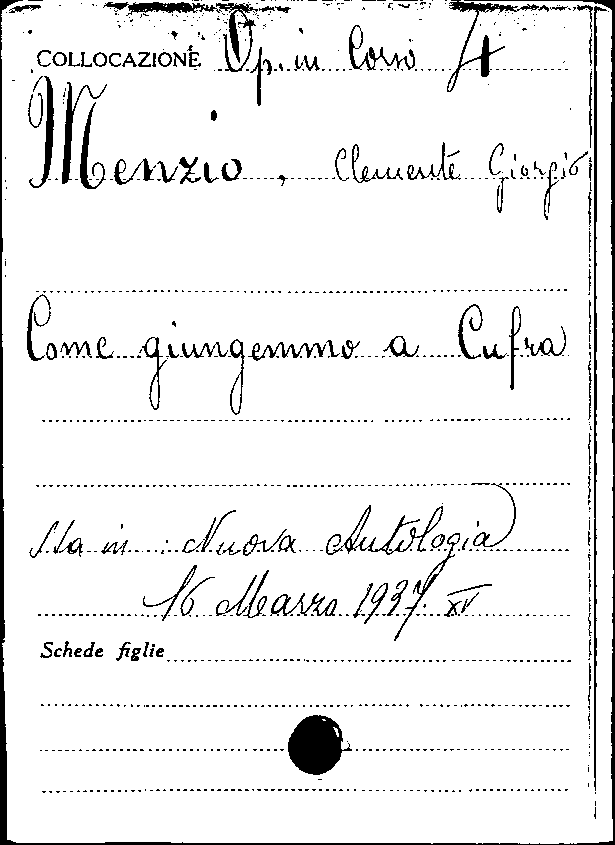 COLLOCAZIONE Op. in Corso 4
Menzio, Clemente Giorgio
Come giungemmo a Cufra
Sta in: Nuova Antologia
16 Marzo 1937. XV
Schede figlie